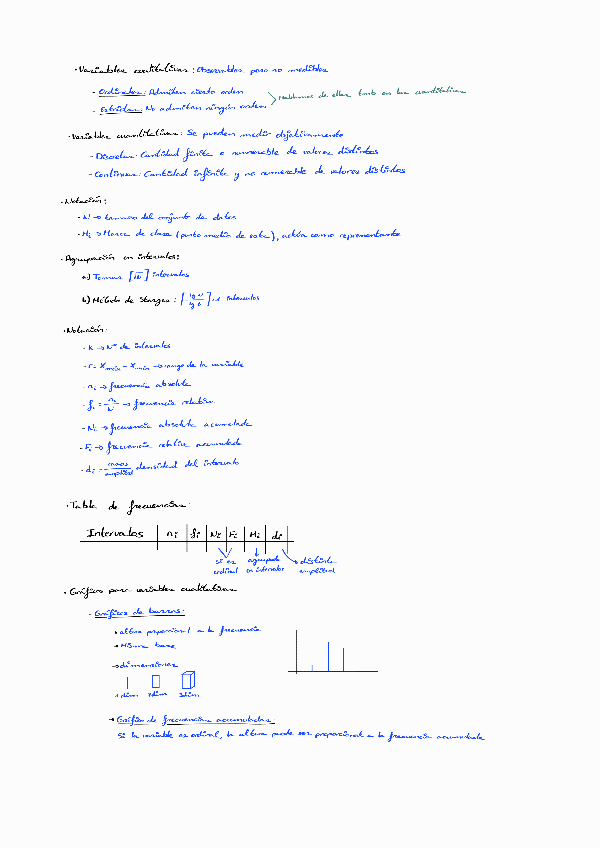 · Variables cualitativas: Observables pero no medibles
- Ordinales: Admiten cierto orden
- No admiten ningún orden
Hablamos de ellas tanto en las cuantitativas
· Variables cuantitativas: Se pueden medir objetivamente
- Discretas: Cantidad finita o numerable de valores distintos
- Continuas: Cantidad infinita y no numerable de valores distintos
· Notación:
- N → tamaño del conjunto de datos
- Mi → Marca de clase (punto medio de este), actúa como representante
· Agrupación en intervalos:
a) Tomar [√N] intervalos
b) Método de Sturges: [log N / log 2] + 1 intervalos
· Notación:
- K → Nº de intervalos
- r = Xmáx - Xmín → rango de la variable
- ni → frecuencia absoluta
- fi = ni/N → frecuencia relativa
- Ni → frecuencia absoluta acumulada
- Fi → frecuencia relativa acumulada
- di = masa/amplitud densidad del intervalo
· Tabla de frecuencias:
Intervalos | ni | fi | Ni | Fi | Mi | di
si es ordinal
agrupada en intervalos
distinta amplitud
· Gráficos para variables cualitativas
- Gráficos de barras:
→ altura proporcional a la frecuencia
→ Misma base
→ dimensiones
1 dim 2 dim 3 dim
→ Gráfico de frecuencias acumuladas
Si la variable es ordinal, la altura puede ser proporcional a la frecuencia acumulada